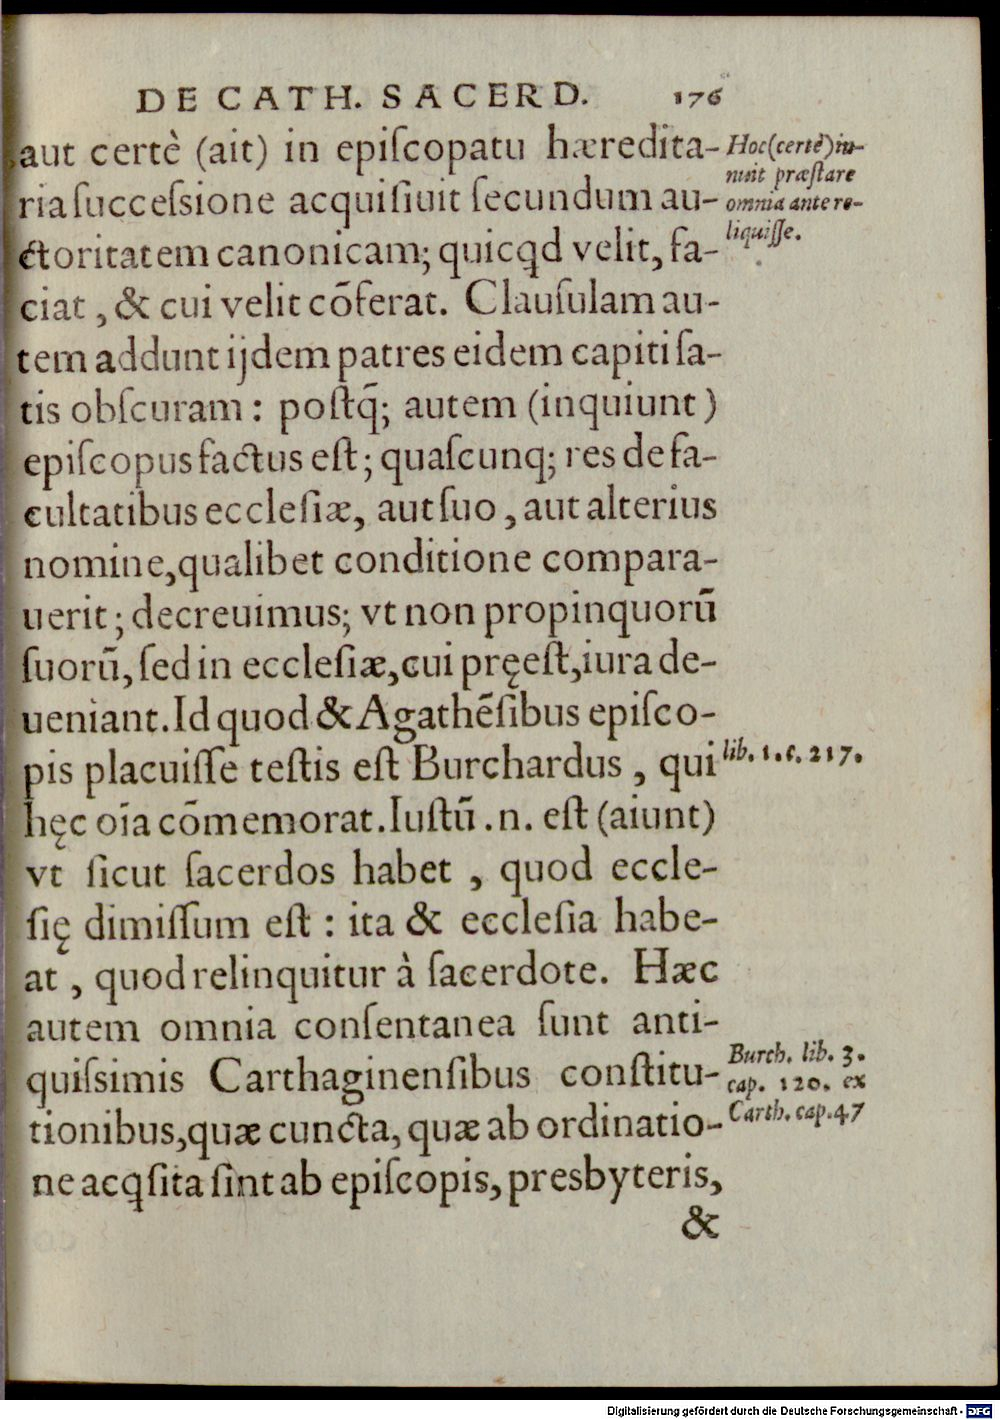 DE CATH. SACERD. 176
aut certè (ait) in epiſcopatu hæredita-
ria ſucceſsione acquiſiuit ſecundum au-
ctoritatem canonicam; quicqd velit, fa-
ciat, & cui velit cōferat. Clauſulam au-
tem addunt ijdem patres eidem capiti ſa-
tis obſcuram: poſtq̄; autem (inquiunt)
epiſcopus factus eſt; quaſcunq; res de fa-
cultatibus eccleſiæ, aut ſuo, aut alterius
nomine, qualibet conditione compara-
uerit; decreuimus; vt non propinquorū
ſuorū, ſed in eccleſiæ, cui pręeſt, iura de-
ueniant. Id quod & Agathēſibus epiſco-
pis placuiſſe teſtis eſt Burchardus, qui
hęc oīa cōmemorat. Iuſtū .n. eſt (aiunt)
vt ſicut ſacerdos habet, quod eccle-
ſię dimiſſum eſt: ita & eccleſia habe-
at, quod relinquitur à ſacerdote. Hæc
autem omnia conſentanea ſunt anti-
quiſsimis Carthaginenſibus conſtitu-
tionibus, quæ cuncta, quæ ab ordinatio-
ne acqſita ſint ab epiſcopis, presbyteris,
&
Hoc (certè) in-
nuit præſtare
omnia ante re-
liquiſſe.
lib. 1. c. 217.
Burch. lib. 3.
cap. 120. ex
Carth. cap. 47
Digitalisierung gefördert durch die Deutsche Forschungsgemeinschaft - DFG